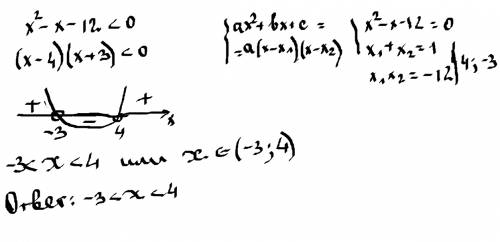 x² - x - 12 < 0
(x-4)(x+3) < 0
ax² + bx + c =
= a(x-x₁)(x-x₂)
x² - x - 12 = 0
x₁ + x₂ = 1
x₁x₂ = -12
4; -3
+ - +
-3 4 x
-3 < x < 4 или x ∈ (-3; 4)
Ответ: -3 < x < 4